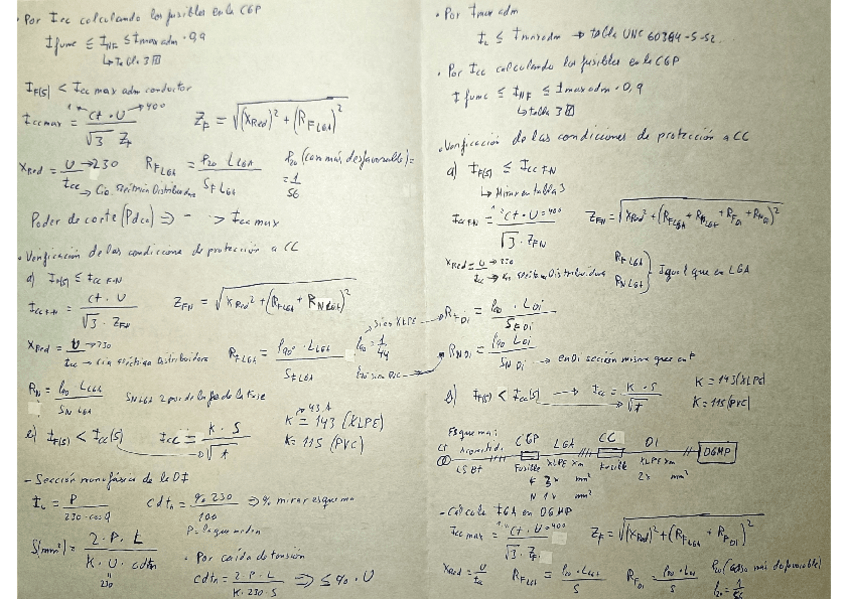 · Por Icc calculando los fusibles en la CGP
I func ≤ I NF ≤ I max adm · 0,9
↳ Tabla 3
I F(5) < I cc max adm conductor
I cc max = ct · U → 400 / √3 · Z F
Z F = √((X Red)² + (R F LGA)²)
X Red = U → 230 / Icc → Cia. Eléctrica Distribuidora
R F LGA = ρ20 · L LGA / S F LGA
ρ20 (con más desfavorable) = 1/56
Poder de corte (Pdc) ⇒ - > I cc max
· Verificación de las condiciones de protección a CC
a) I F(5) ≤ I cc F-N
I cc F-N = ct · U / √3 · Z FN
Z FN = √(X Red² + (R F LGA + R N LGA)²)
X Red = U → 230 / Icc → Cia eléctrica Distribuidora
R F LGA = ρ90° · L LGA / S F LGA
Si es XLPE
ρ90 = 1/44
R N = ρ90 · L LGA / S N LGA
S N LGA 2 por de la fase
I F(5) < I cc(5)
I cc = K · S / √t
K = 143 (XLPE)
K = 115 (PVC)
- Sección monofásica de la DI
I b = P / 230 · cos φ
cdt n = % · 230 / 100 ⇒ % mirar esquema
S (mm²) = 2 · P · L / K · U · cdt n
230
· Por caída de tensión
cdt n = 2 · P · L / K · 230 · S ⇒ ≤ % · U
· Por I max adm
I b ≤ I max adm → tabla UNE 60364-5-52
· Por Icc calculando los fusibles en la CGP
I func ≤ I NF ≤ I max adm · 0,9
↳ tabla 3
· Verificación de las condiciones de protección a CC
a) I F(5) ≤ I cc F-N
↳ Mirar en tabla 3
I cc F-N = ct · U = 400 / √3 · Z FN
Z FN = √(X Red² + (R F LGA + R N LGA + R F DI + R N DI)²)
X Red = U → 230 / Icc → Cia eléctrica Distribuidora
R F LGA
R N LGA
Igual que en LGA
R F DI = ρ90 · L DI / S F DI
R N DI = ρ90 · L DI / S N DI → en DI sección misma que en
b) I F(5) < I cc(5) → I cc = K · S / √t
K = 143 (XLPE)
K = 115 (PVC)
Esquema:
CT Acometida CGP LGA CC DI DGMP
LSBT Fusible XLPE Fusible XLPE
F 3x mm² 2x mm²
N 1x mm²
- Cálculo IGA en DGMP
I cc max = ct · U = 400 / √3 · Z F
Z F = √((X Red)² + (R F LGA + R F DI)²)
X Red = U / Icc
R F LGA = ρ20 · L LGA / S
R F DI = ρ20 · L DI / S
ρ20 (caso más desfavorable)
ρ20 = 1/56